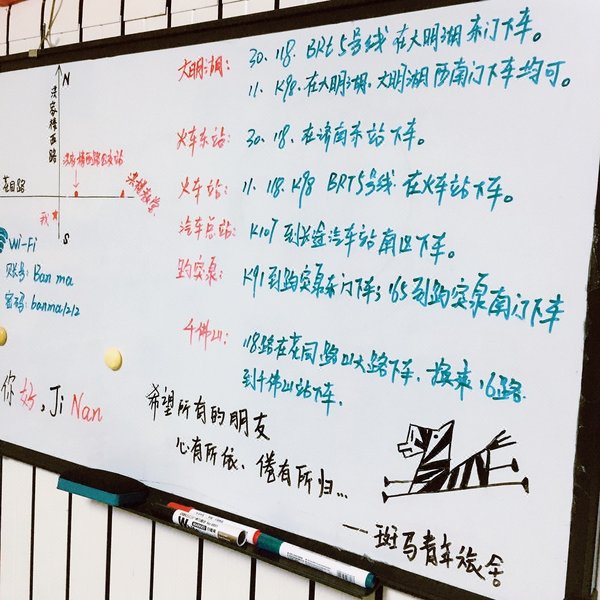 大明湖: 30、118、BRT5号线 在大明湖东门下车。
11、K98、在大明湖、大明湖西南门下车均可。
火车东站: 30、118、在济南东站下车。
火车站: 11、118、K98 BRT5号线 在火车站下车。
汽车总站: K107到长途汽车站南区下车。
趵突泉: K91到趵突泉东门下车;165到趵突泉南门下车
千佛山: 118路在花园路山大路下车、换乘16路
到千佛山站下车.
N
洪家楼西路
花园路
洪家楼西路公交站
洪楼教堂
我
S
Wi-Fi
账号: Banma
密码: banma1212
你好, Ji Nan
希望所有的朋友
心有所依、倦有所归...
—斑马青年旅舍